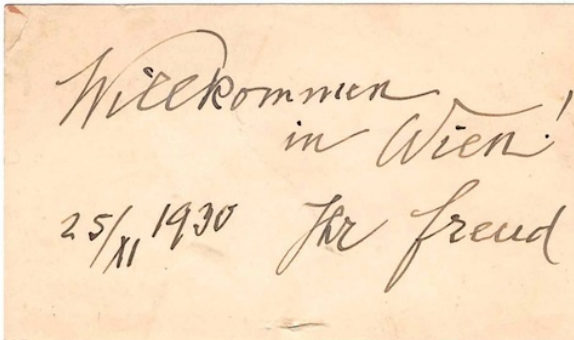 Willkommen
in Wien!
25/XI 1930 Ihr Freud